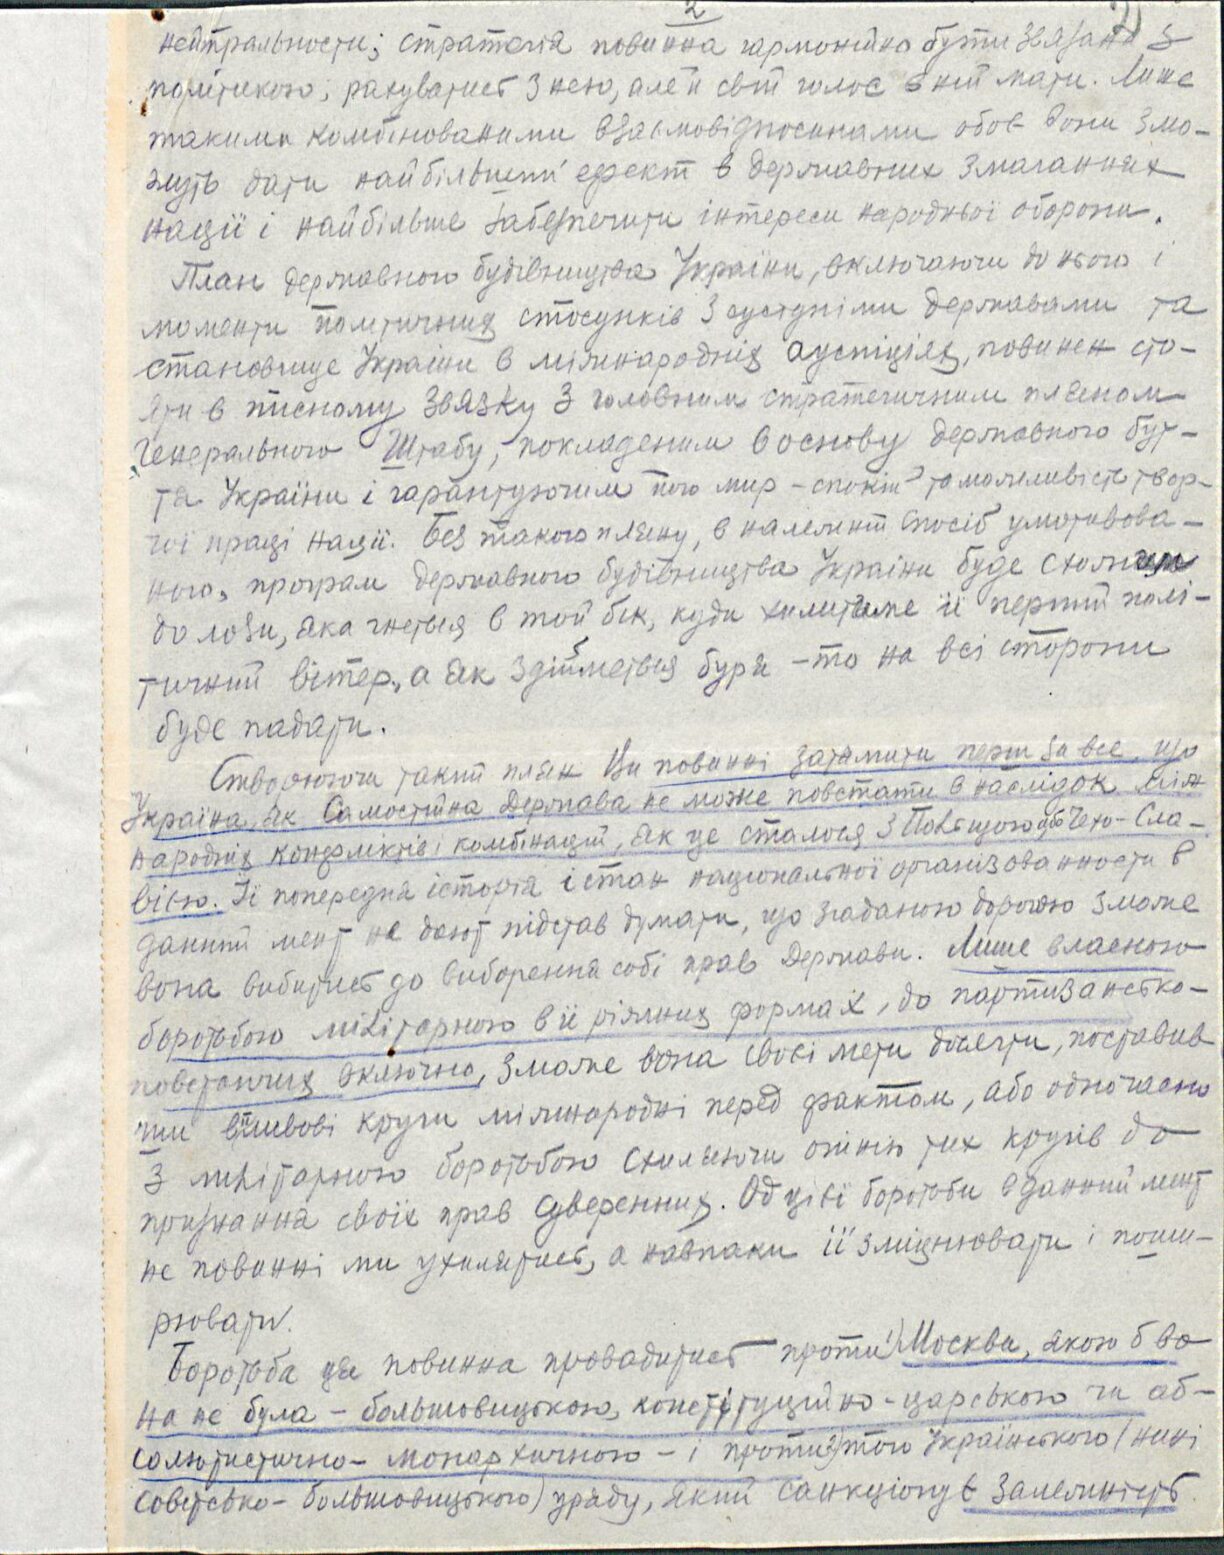 2
2)
нейтральности; стратегія повинна гармонійно бути звязана з
політикою, рахуватись з нею, але й свій голос в ній мати. Лише
такими комбінованими взаємовідносинами обов вони змо-
жуть дати найбільший ефект в державних змаганнях
нації і найбільше забезпечити інтереси народньої оборони.
План державного будівництва України, включаючи до нього і
моменти політичних стосунків з сусідніми державами та
становище України в міжнародніх ауспіціях, повинен сто-
яти в тісному звязку з головним стратегичним пляном
Генерального Штабу, покладеним в основу державного бут-
та України і гарантуючим його мир-спокій та можливість твор-
чої праці нації. Без такого пляну, в належит спосіб умотивова-
ного, програм державного будівництва України буде схожим
до лози, яка гнеться в той бік, куди хилитиме її перший полі-
тичний вітер, а як здійметься буря - то на всі сторони
буде падати.
Створюючи такий плян Ви повинні затямити перш за все, що
Україна, як Самостійна Держава не може повстати в наслідок між
народніх конфліктів і комбінацій, як це сталося з Польщою чи Чехо-Сла-
вією. Її попередня історія і стан національної організованности в
данний мент не дають підстав думати, що згаданою дорогою зможе
вона вибитись до виборення собі прав Держави. Лише власною
боротьбою мілітарною в її ріжних формах, до партизансько-
повстанчих включно, зможе вона своєї мети досягти, поставив
ши впливові круги міжнародні перед фактом, або одночасно
з мілітарною боротьбою схиляючи опінію тих кругів до
признання своїх прав суверенних. Од цієї боротьби в данний мент
не повинні ми ухилятись, а навпаки її зміцнювати і поши-
рювати.
Боротьба ця повинна провадитись проти 1) Москви, якою б во
на не була - большовицькою, конституційно-царською чи аб-
солютистично-монархичною - і проти 2) того Українського (нині
совєтсько-большовицького) уряду, який санкціонує залежність